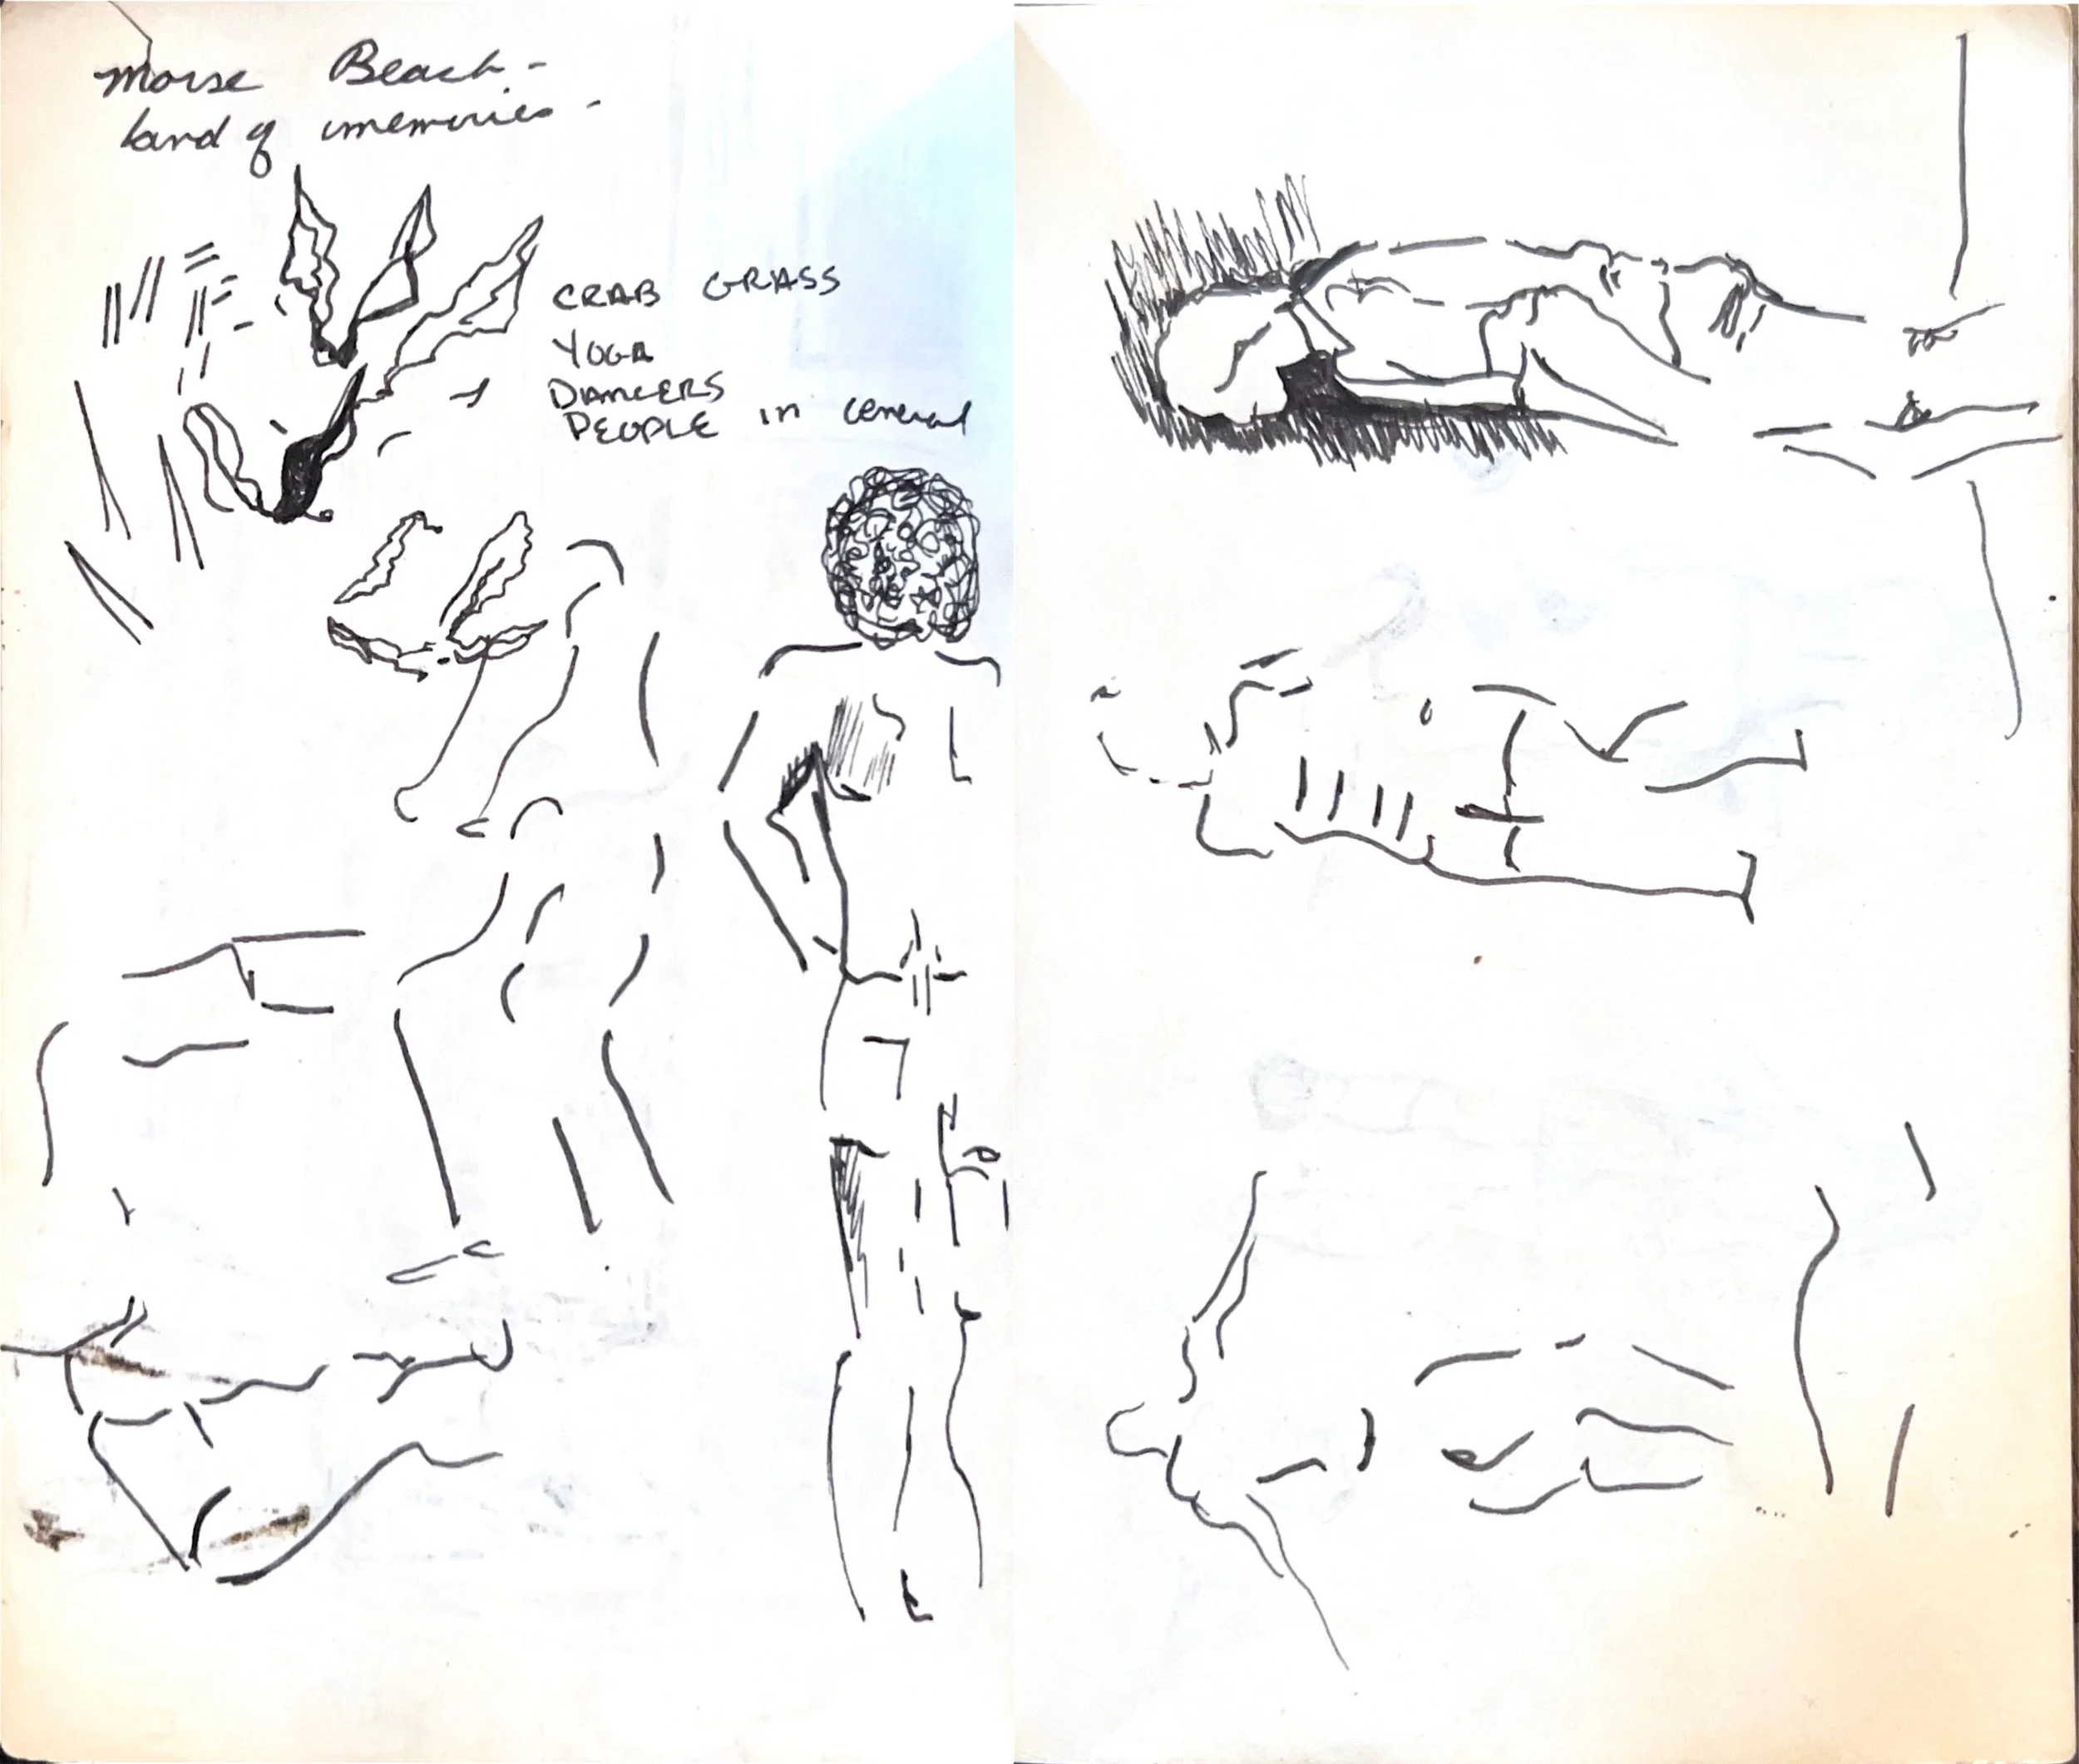 Morse Beach -
land of memories -
CRAB GRASS
YOGA
DANCERS
PEOPLE in General